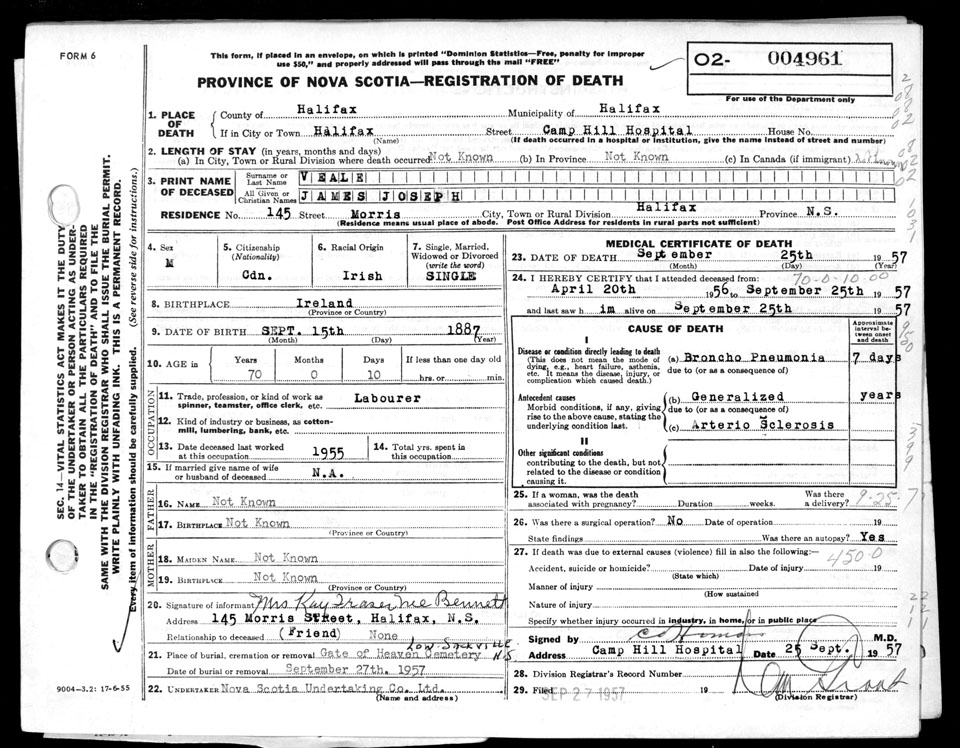 FORM 6
This form, if placed in an envelope, on which is printed "Dominion Statistics—Free, penalty for improper
use $50," and properly addressed will pass through the mail "FREE"
PROVINCE OF NOVA SCOTIA—REGISTRATION OF DEATH
02- 004961
For use of the Department only
1. PLACE OF DEATH
County of Halifax Municipality of Halifax
If in City or Town Halifax Street Camp Hill Hospital House No.
(Name) (If death occurred in a hospital or institution, give the name instead of street and number)
2. LENGTH OF STAY (in years, months and days)
(a) In City, Town or Rural Division where death occurred Not Known (b) In Province Not Known (c) In Canada (if immigrant)
3. PRINT NAME OF DECEASED
Surname or Last Name VEALE
All Given or Christian Names JAMES JOSEPH
RESIDENCE No. 145 Street Morris City, Town or Rural Division Halifax Province N.S.
(Residence means usual place of abode. Post Office Address for residents in rural parts not sufficient)
4. Sex M
5. Citizenship (Nationality) Cdn.
6. Racial Origin Irish
7. Single, Married, Widowed or Divorced (write the word) SINGLE
8. BIRTHPLACE Ireland
(Province or Country)
9. DATE OF BIRTH SEPT. 15th 1887
(Month) (Day) (Year)
10. AGE in Years Months Days If less than one day old
70 0 10 hrs. or min.
OCCUPATION
11. Trade, profession, or kind of work as spinner, teamster, office clerk, etc. Labourer
12. Kind of industry or business, as cotton-mill, lumbering, bank, etc.
13. Date deceased last worked at this occupation 1955
14. Total yrs. spent in this occupation
15. If married give name of wife or husband of deceased N.A.
FATHER
16. NAME Not Known
17. BIRTHPLACE Not Known
(Province or Country)
MOTHER
18. MAIDEN NAME Not Known
19. BIRTHPLACE Not Known
(Province or Country)
20. Signature of informant Mrs Kay Fraser nee Bennett
Address 145 Morris Street, Halifax, N.S.
Relationship to deceased (Friend) None
LOW. SACKVILLE
21. Place of burial, cremation or removal Gate of Heaven Cemetery N.S
Date of burial or removal September 27th. 1957
22. UNDERTAKER Nova Scotia Undertaking Co. Ltd.
(Name and address)
MEDICAL CERTIFICATE OF DEATH
23. DATE OF DEATH September 25th 1957
(Month) (Day) (Year)
70-0-10-00
24. I HEREBY CERTIFY that I attended deceased from:
April 20th 1956 to September 25th 1957
and last saw him alive on September 25th 1957
CAUSE OF DEATH
Approximate interval between onset and death
I
Disease or condition directly leading to death
(This does not mean the mode of dying, e.g., heart failure, asthenia, etc. It means the disease, injury, or complication which caused death.)
(a) Broncho Pneumonia 7 days
due to (or as a consequence of)
Antecedent causes
Morbid conditions, if any, giving rise to the above cause, stating the underlying condition last.
(b) Generalized years
due to (or as a consequence of)
(c) Arterio Sclerosis
II
Other significant conditions
contributing to the death, but not related to the disease or condition causing it.
25. If a woman, was the death associated with pregnancy? Duration weeks. Was there a delivery?
9-25-7
26. Was there a surgical operation? No Date of operation 19
State findings Was there an autopsy? Yes
27. If death was due to external causes (violence) fill in also the following:—
450-0
Accident, suicide or homicide? Date of injury 19
(State which)
Manner of injury
(How sustained
Nature of injury
Specify whether injury occurred in industry, in home, or in public place
Signed by M.D.
Address Camp Hill Hospital Date 25 Sept. 1957
28. Division Registrar's Record Number
29. Filed SEP 27 1957 19
(Division Registrar)
SEC. 14—VITAL STATISTICS ACT MAKES IT THE DUTY
OF THE UNDERTAKER OR PERSON ACTING AS UNDER-
TAKER TO OBTAIN ALL THE PARTICULARS REQUIRED
IN THE "REGISTRATION OF DEATH" AND TO FILE THE
SAME WITH THE DIVISION REGISTRAR WHO SHALL ISSUE THE BURIAL PERMIT.
WRITE PLAINLY WITH UNFADING INK. THIS IS A PERMANENT RECORD.
Every item of information should be carefully supplied. (See reverse side for instructions.)
9004-3.2: 17-6-55